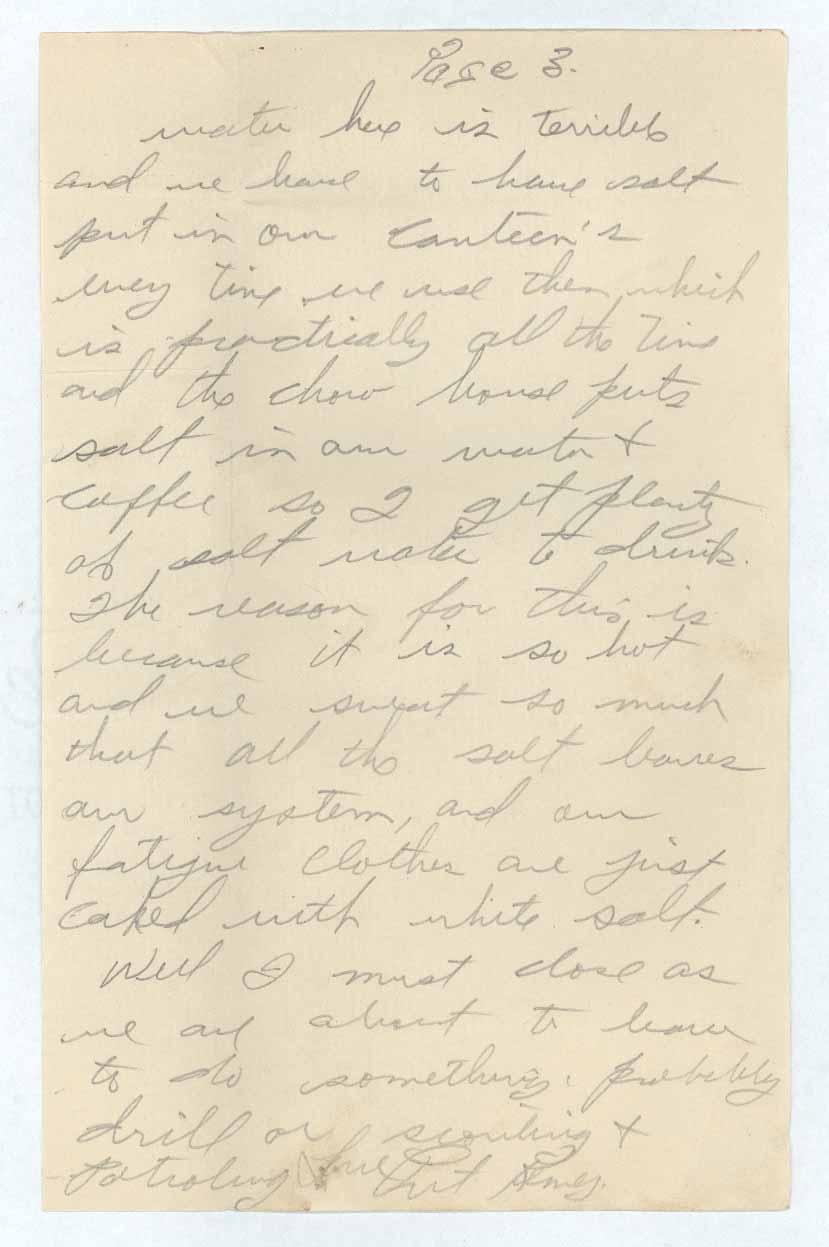 Page 3.
water here is terrible
and we have to have salt
put in our canteen's
every time we use them which
is practically all the time
and the chow house puts
salt in our water +
coffee so I get plenty
of salt water to drink.
The reason for this is
because it is so hot
and we sweat so much
that all the salt leaves
our system, and our
fatigue clothes are just
caked with white salt.
Well I must close as
we are about to leave
to do something. probably
drill or scouting +
Patroling. Love